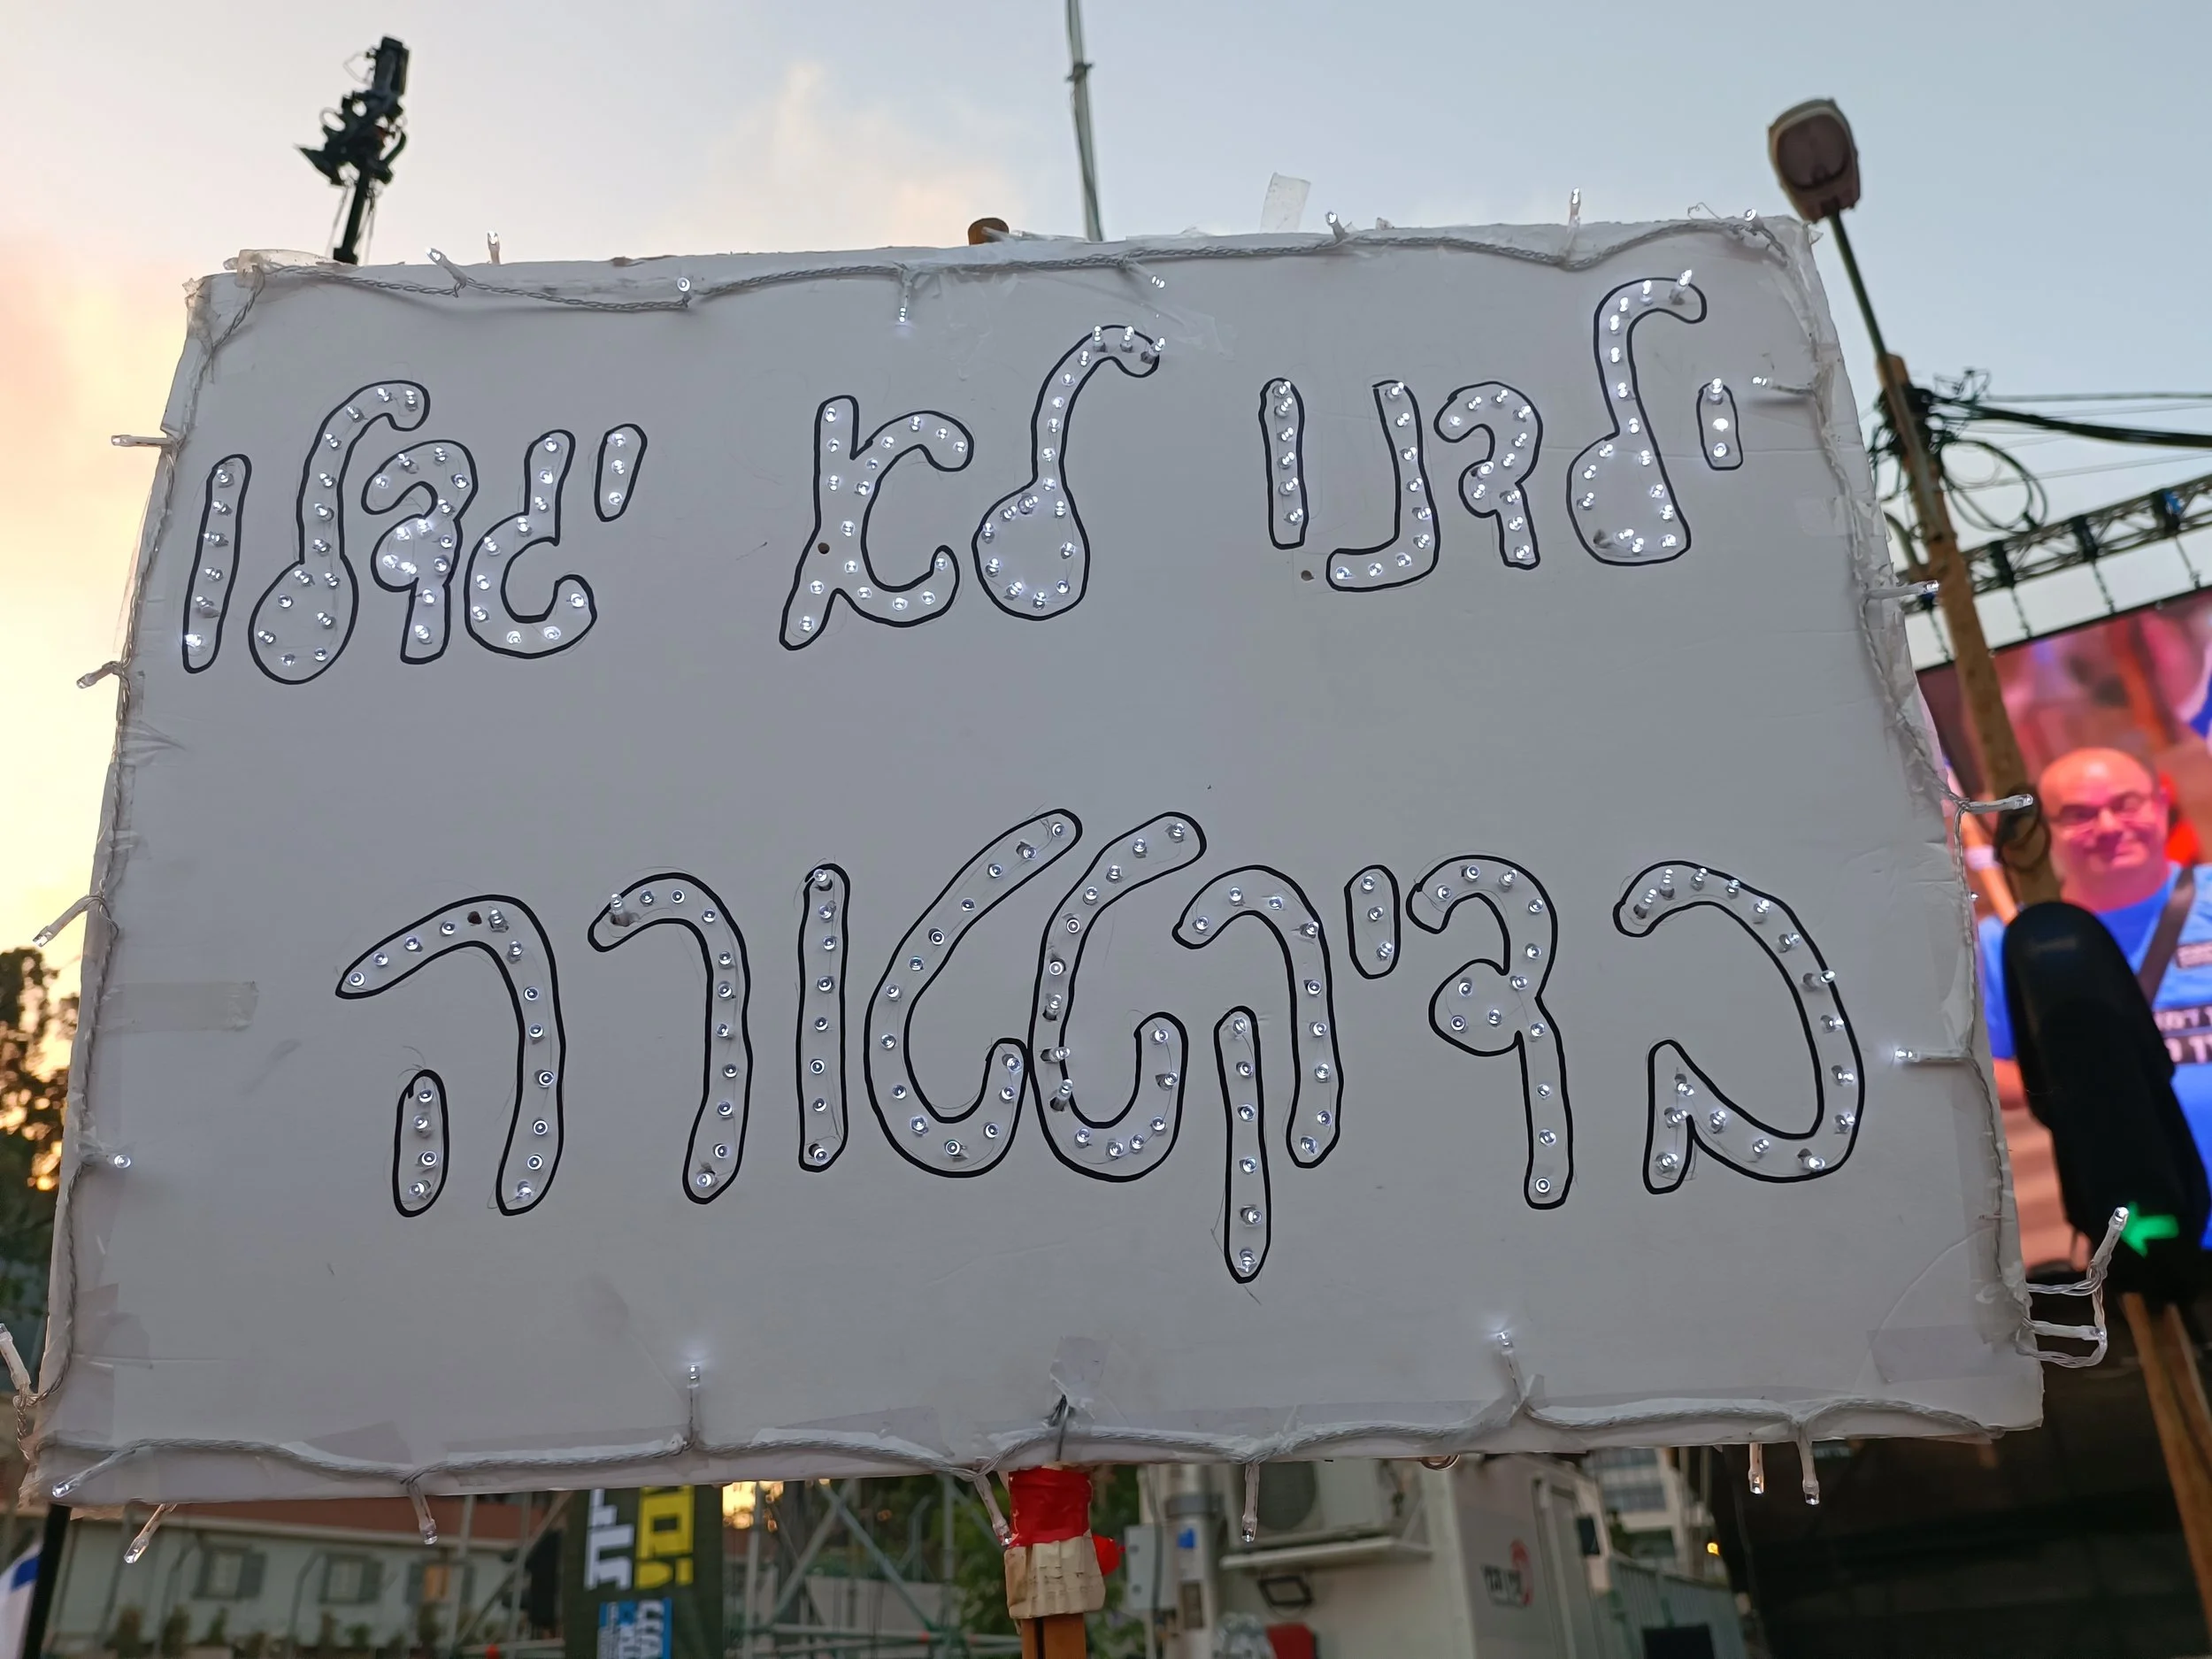 ילדנו לא יגדלו
בדיקטטורה